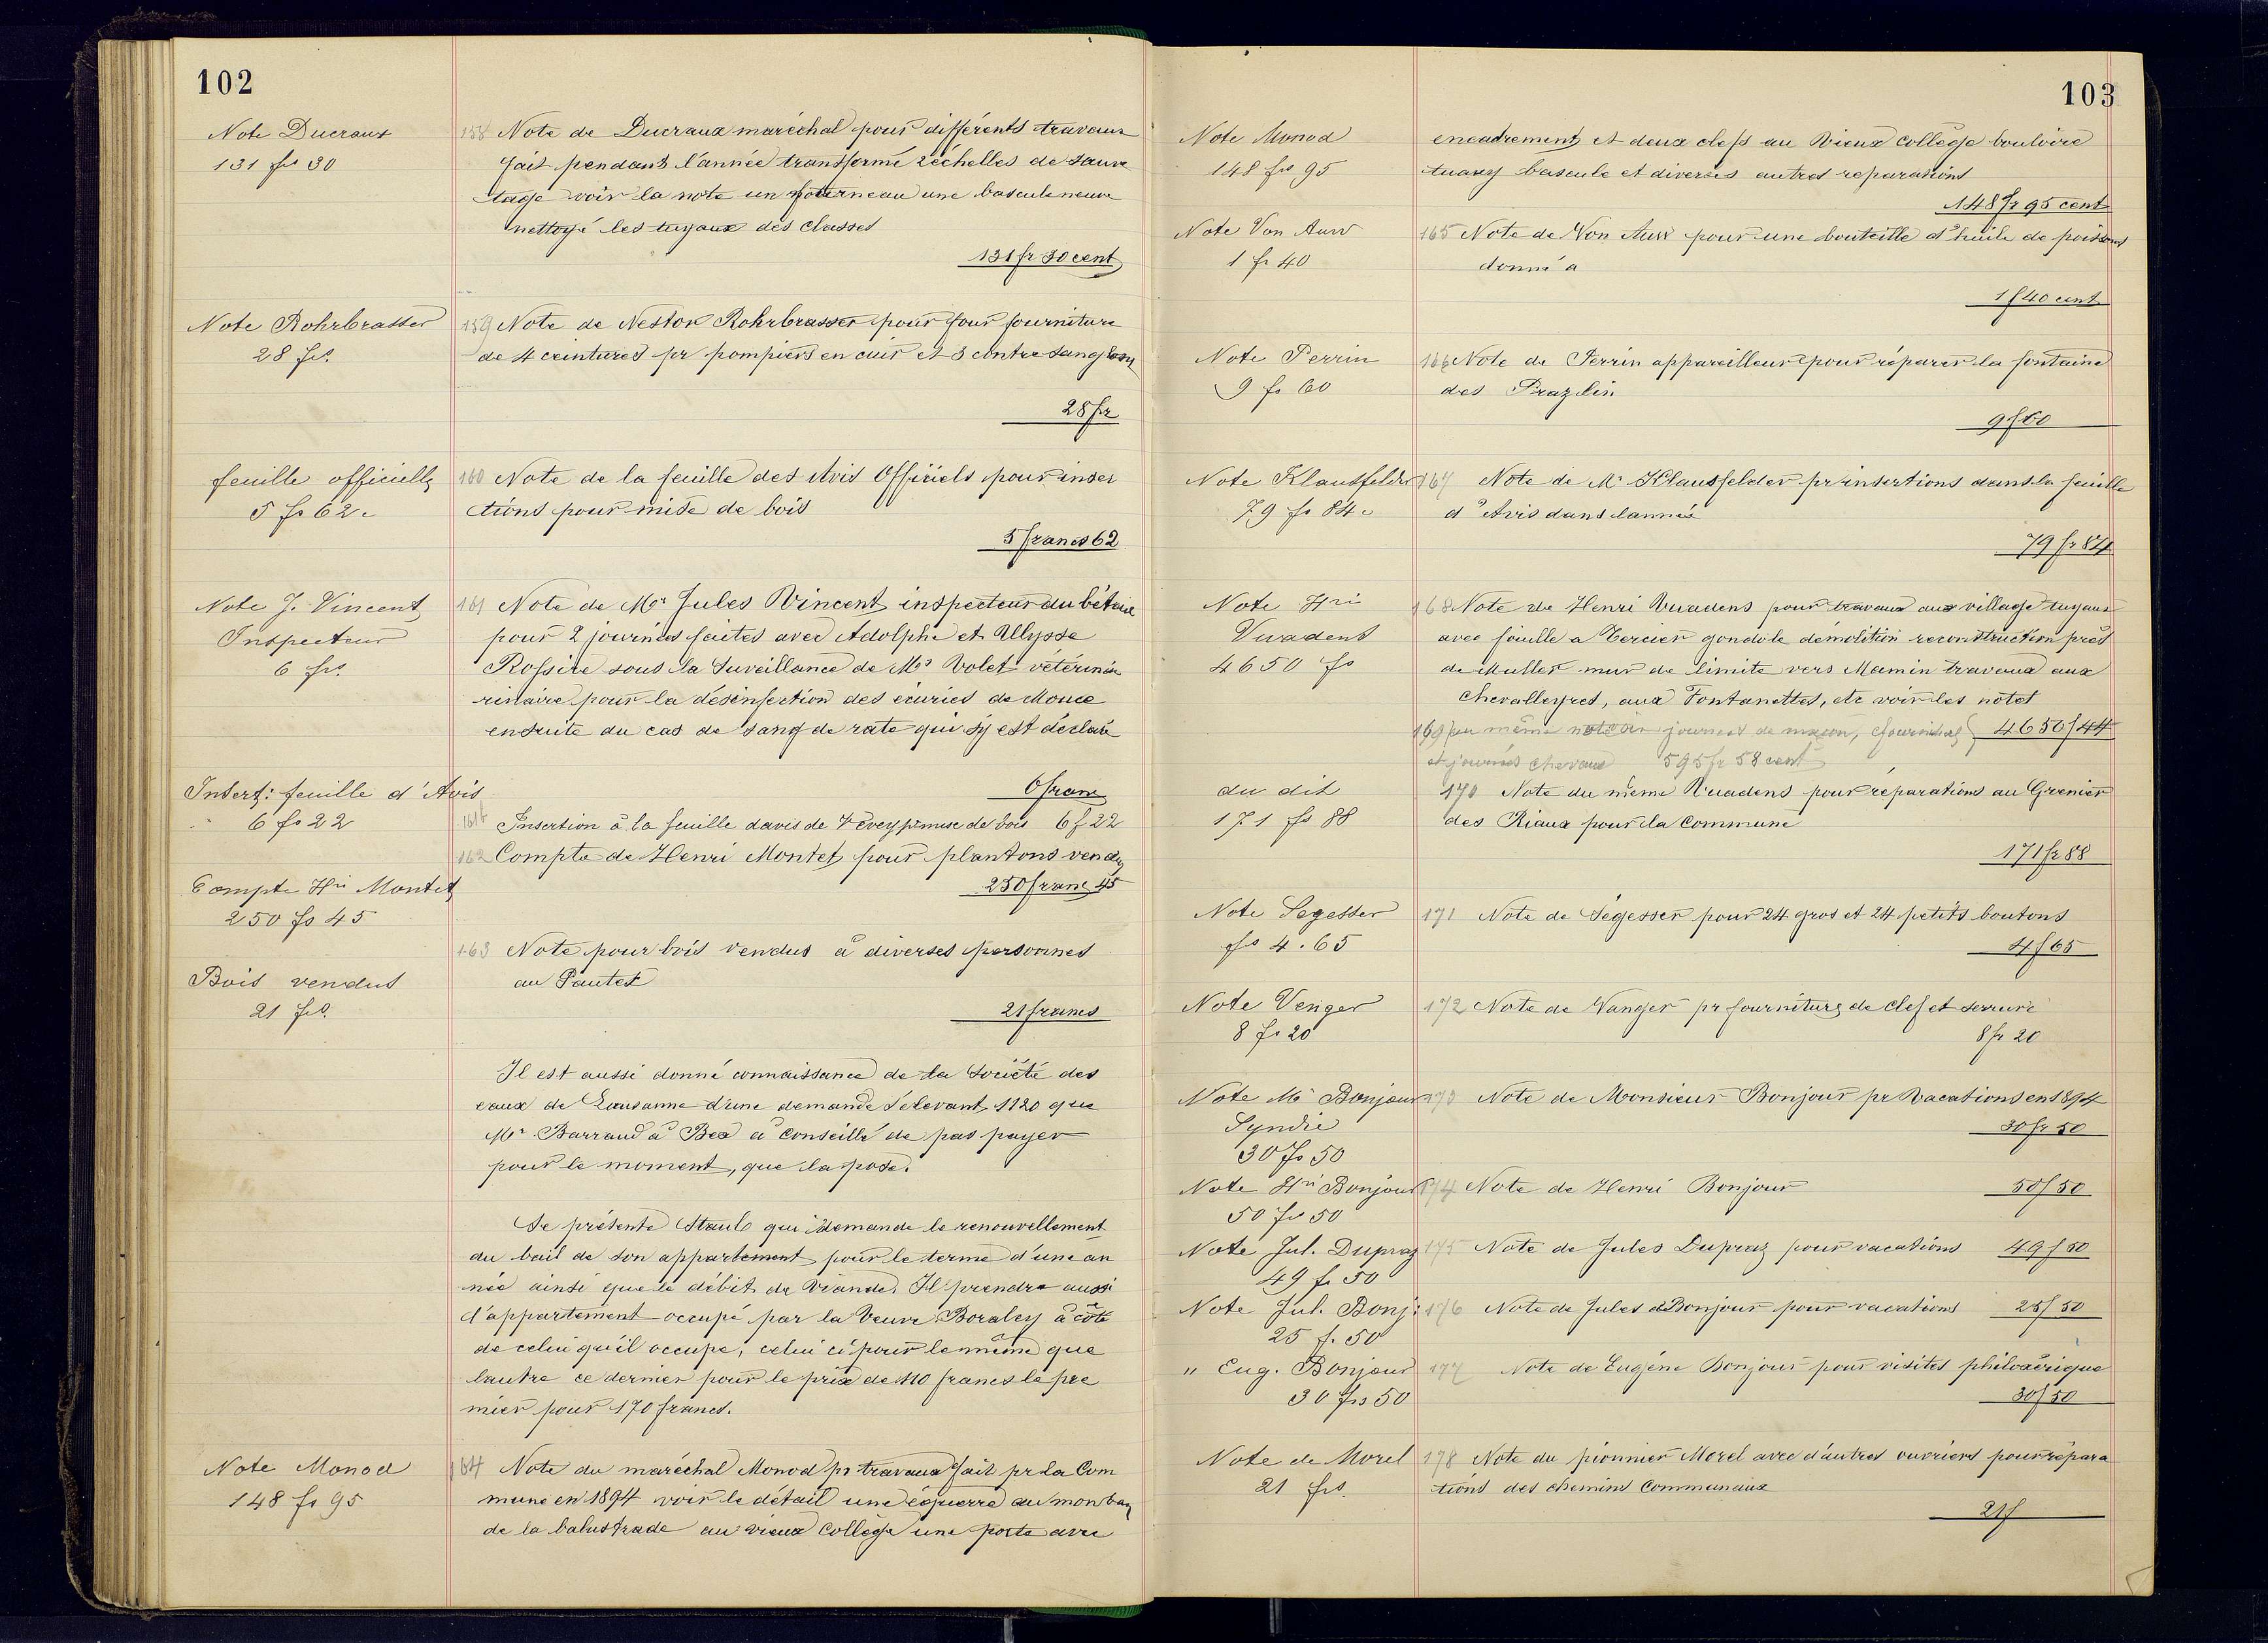 102
Note Ducraux
131 frs 30
158 Note de Ducraux maréchal pour différents travaux
fait pendant l'année transformé 2 échelles de sauve
tage voir la note un fourneau une bascule neuve
nettoyé les tuyaux des classes
131 fr 30 cent
Note Rohrbrasser
28 frs.
159 Note de Nestor Rohrbrasser pour four fourniture
de 4 ceintures pr pompiers en cuir et 3 contre sanglons
28 fr
feuille officielle
5 fr 62 c
160 Note de la feuille des Avis Officiels pour inser
ctions pour mise de bois
5 francs 62
Note J. Vincent
Inspecteur
6 frs.
161 Note de Mr Jules Vincent inspecteur du bétail
pour 2 journées faites avec Adolphe et Ullysse
Rossire sous la Surveillance de Mr Volet vétérinai
rinaire pour la désinfection des écuries de Mouce
ensuite du cas de sang de rate qui s'y est déclaré
6 franc
Insert: feuille d'Avis
6 fs 22
161b Insertion à la feuille d'avis de Vevey pr mise de bois 6 f 22
162 Compte de Henri Montet pour plantons vendu
250 franc 45
Compte Hri Montet
250 fs 45
163 Note pour bois vendus à diverses personnes
au Pautex
21 francs
Bois vendus
21 frs.
Il est aussi donné connaissance de la Société des
eaux de Lausanne d'une demande s'élevant 1120 que
Mr. Barraud à Bex a conseillé de pas payer
pour le moment, que la pose.
Se présente Staub qui demande le renouvellement
du bail de son appartement pour le terme d'une an
née ainsi que le débit de Viande. Il prendra aussi
l'appartement occupé par la Veuve Boraley à côté
de celui qu'il occupe, celui ci pour le même que
lautre ce dernier pour le prix de 110 francs le pre
mier pour 170 francs.
Note Monod
148 fs 95
164 Note du maréchal Monod pr travaux fait pr La Com
mune en 1894 voir le détail une équerre au montan
de la balustrade au vieux Collège une porte avec
103
Note Monod
148 frs 95
encadrement et deux clefs au Vieux collège bouloire
tuaxy bascule et diverses autres reparations
148 fr 95 cent
Note Von Auw
1 fr 40
165 Note de Von Auw pour une bouteille d'huile de poissons
donné a
1 f 40 cent
Note Perrin
9 fs 60
166 Note de Perrin appareilleur pour réparer la fontaine
des Prazlin
9 f 60
Note Klausfelder
79 fs 84 c
167 Note de Mr Klausfelder pr insertions dans la feuille
d'Avis dans lannée
79 fr 84
Note Hri
Vuadens
4650 fs
168 Note de Henri Vuadens pour travaux aux village tuyaux
avec fouille a Tercier gondole démolition reconstruction près
de Muller mur de limite vers Mamin travaux aux
Chevalleyres, aux Fontanettes, etc voir les notes
4650 f 44
169 au même note journées de maçon, fournitures
et journées chevaux 595 fr 58 cent
du dit
171 fs 88
170 Note du même Vuadens pour réparations au Grenier
des Riaux pour la Commune
171 fr 88
Note Segesser
frs 4.65
171 Note deSégesser pour 24 gros et 24 petits boutons
4 f 65
Note Venger
8 fs 20
172 Note de Vanger pr fourniture de clef et serrure
8 fr 20
Note Mr Bonjour
Syndic
30 fs 50
173 Note de Monsieur Bonjour pr Vacations en 1894
30 fr 50
Note Hri Bonjour
50 frs 50
174 Note de Henri Bonjour 50 f 50
Note Jul. Dupraz
49 fr 50
175 Note de Jules Dupraz pour vacations 49 f 50
Note Jul. Bonj:
25 f. 50
176 Note de Jules Bonjour pour vacations 25 f 50
" Eug. Bonjour
30 frs 50
177 Note de Eugéne Bonjour pour visites philoxérique
30 f 50
Note de Morel
21 frs.
178 Note du pionnier Morel avec d'autres ouvriers pour répara
tions des chemins Communaux
21 f